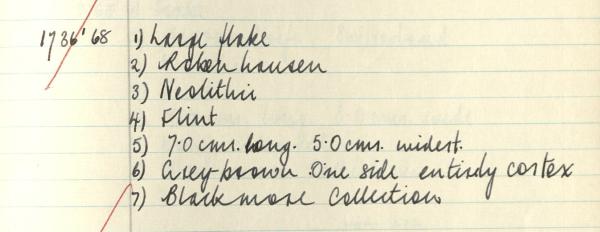 1736'68 1) Large flake
2) Robenhausen
3) Neolithic
4) Flint
5) 7.0 cms. long. 5.0 cms. widest.
6) Grey-brown. One side entirely cortex
7) Blackmore Collection